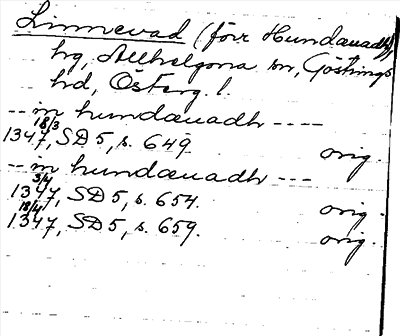 Linnevad (förr Hundauadh)
hg, Allhelgona sn, Göstrings
hd, Österg. l.
-- in hundauadh ----
18/3
1347, SD 5, s. 649. orig.
-- in hundauadh ---
3/4
1347, SD 5, s. 654. orig.
18/4
1347, SD 5, s. 659. orig.